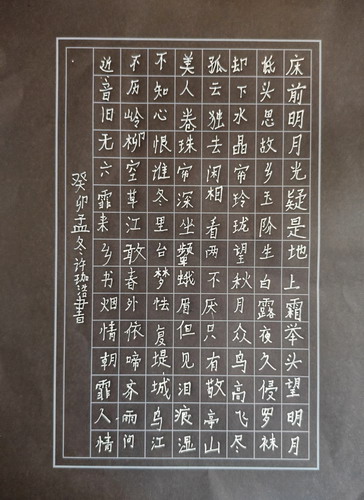 床前明月光疑是地上霜举头望明月
低头思故乡玉阶生白露夜久侵罗袜
却下水晶帘玲珑望秋月众鸟高飞尽
孤云独去闲相看两不厌只有敬亭山
美人卷珠帘深坐颦蛾眉但见泪痕湿
不知心恨谁冬里台梦怯复堤城乌江
不历岭柳空草江敢春外依啼齐雨问
近音旧无六霏来乡书烟情朝霏人情
癸卯孟冬许珈书